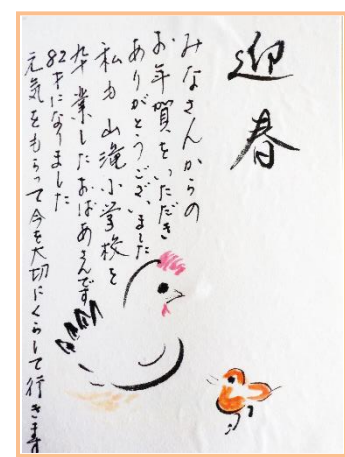 迎春
みなさんからの
お年賀をいただき
ありがとうございました
私も山滝小学校を
卒業したおばあさんです
82才になりました
元気をもらって今を大切にくらして行きます